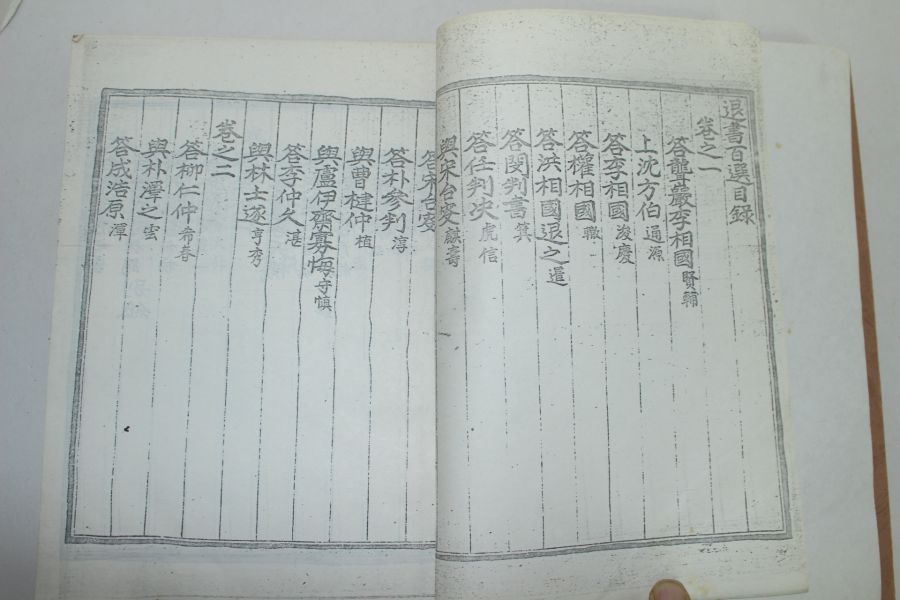 退書百選目錄
卷之一
答聾巖李相國賢輔
上沈方伯通源
答李相國浚慶
答權相國轍
答洪相國退之暹
答閔判書箕
答任判決虎信
與宋台叟麒壽
答宋台叟
答朴參判淳
與曹楗仲植
與盧伊齋寡悔守愼
答李仲久湛
與林士遂亨秀
卷之二
答柳仁仲希春
與朴澤之雲
答成浩原渾